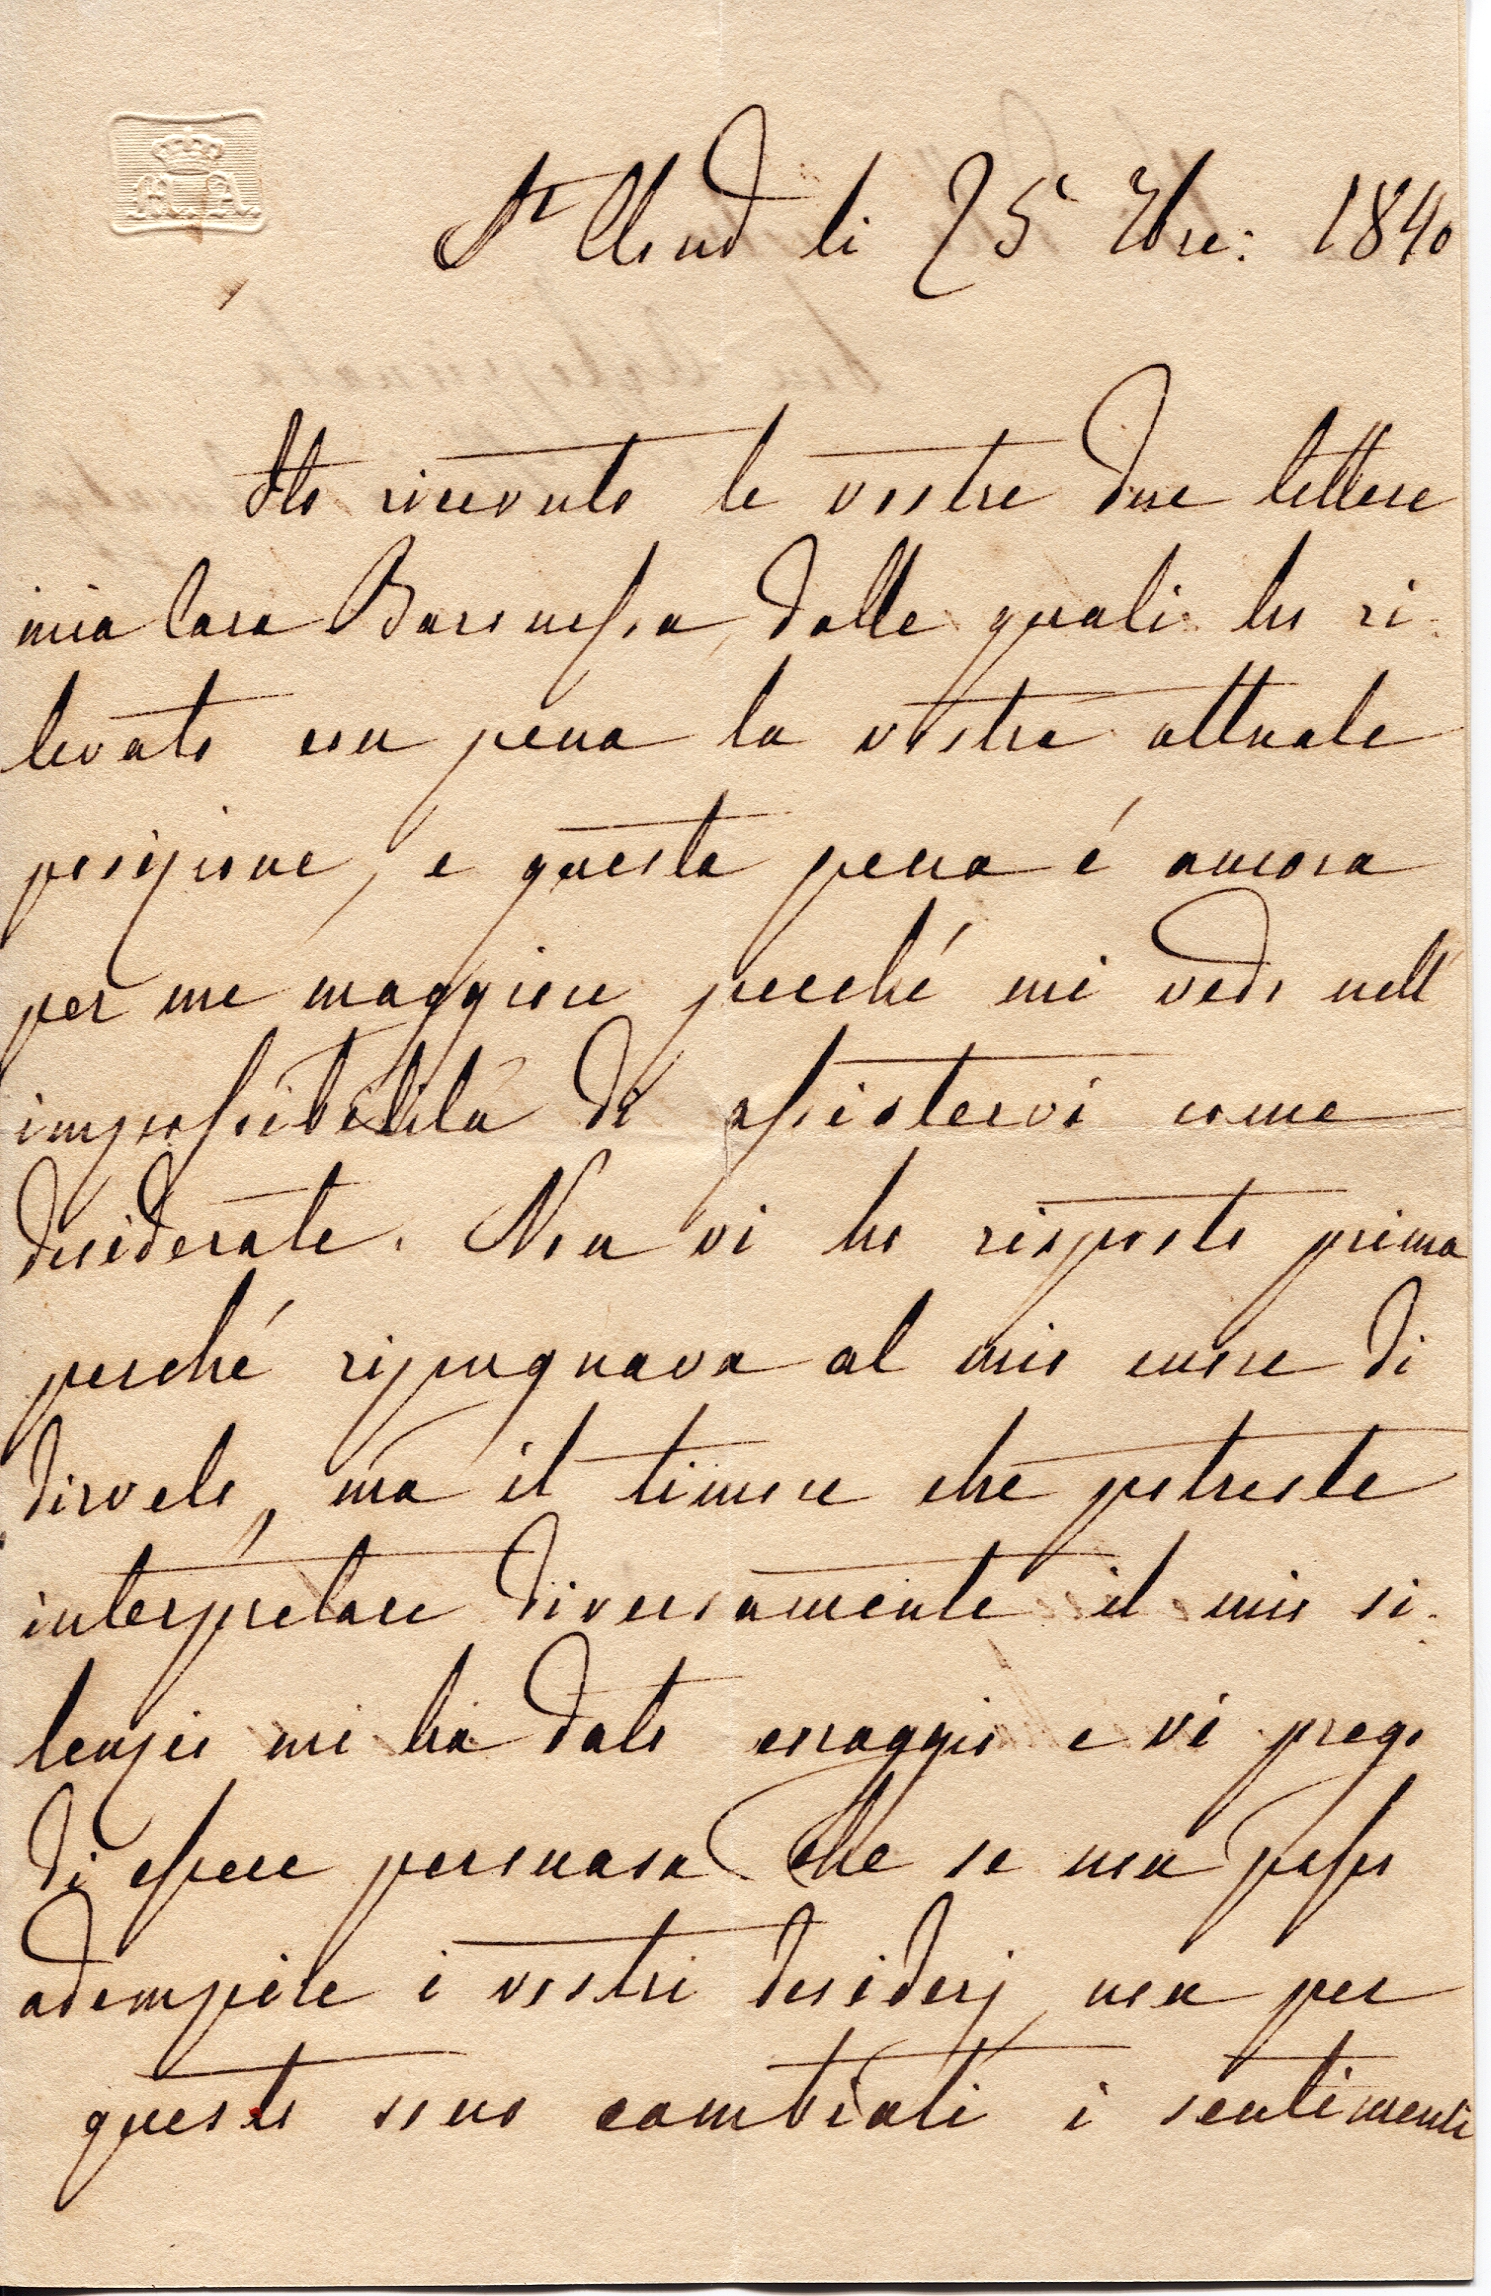 St Cloud li 25 8bre: 1840
Ho ricevuto le vostre due lettere
mia Cara Baronessa, dalle quali ho ri-
levato con pena la vostra attuale
posizione, e questa pena é ancora
per me maggiore perché mi vedo nell'
impossibilitá di assistervi come
desiderate. Non vi ho risposto prima
perché ripugnava al mio cuore di
dirvelo, ma il timore che potreste
interpretare diversamente il mio si-
lenzio mi ha dato coraggio e vi prego
di essere persuasa che se non posso
adempire i vostri desiderj non per
questo sono cambiati i sentimenti